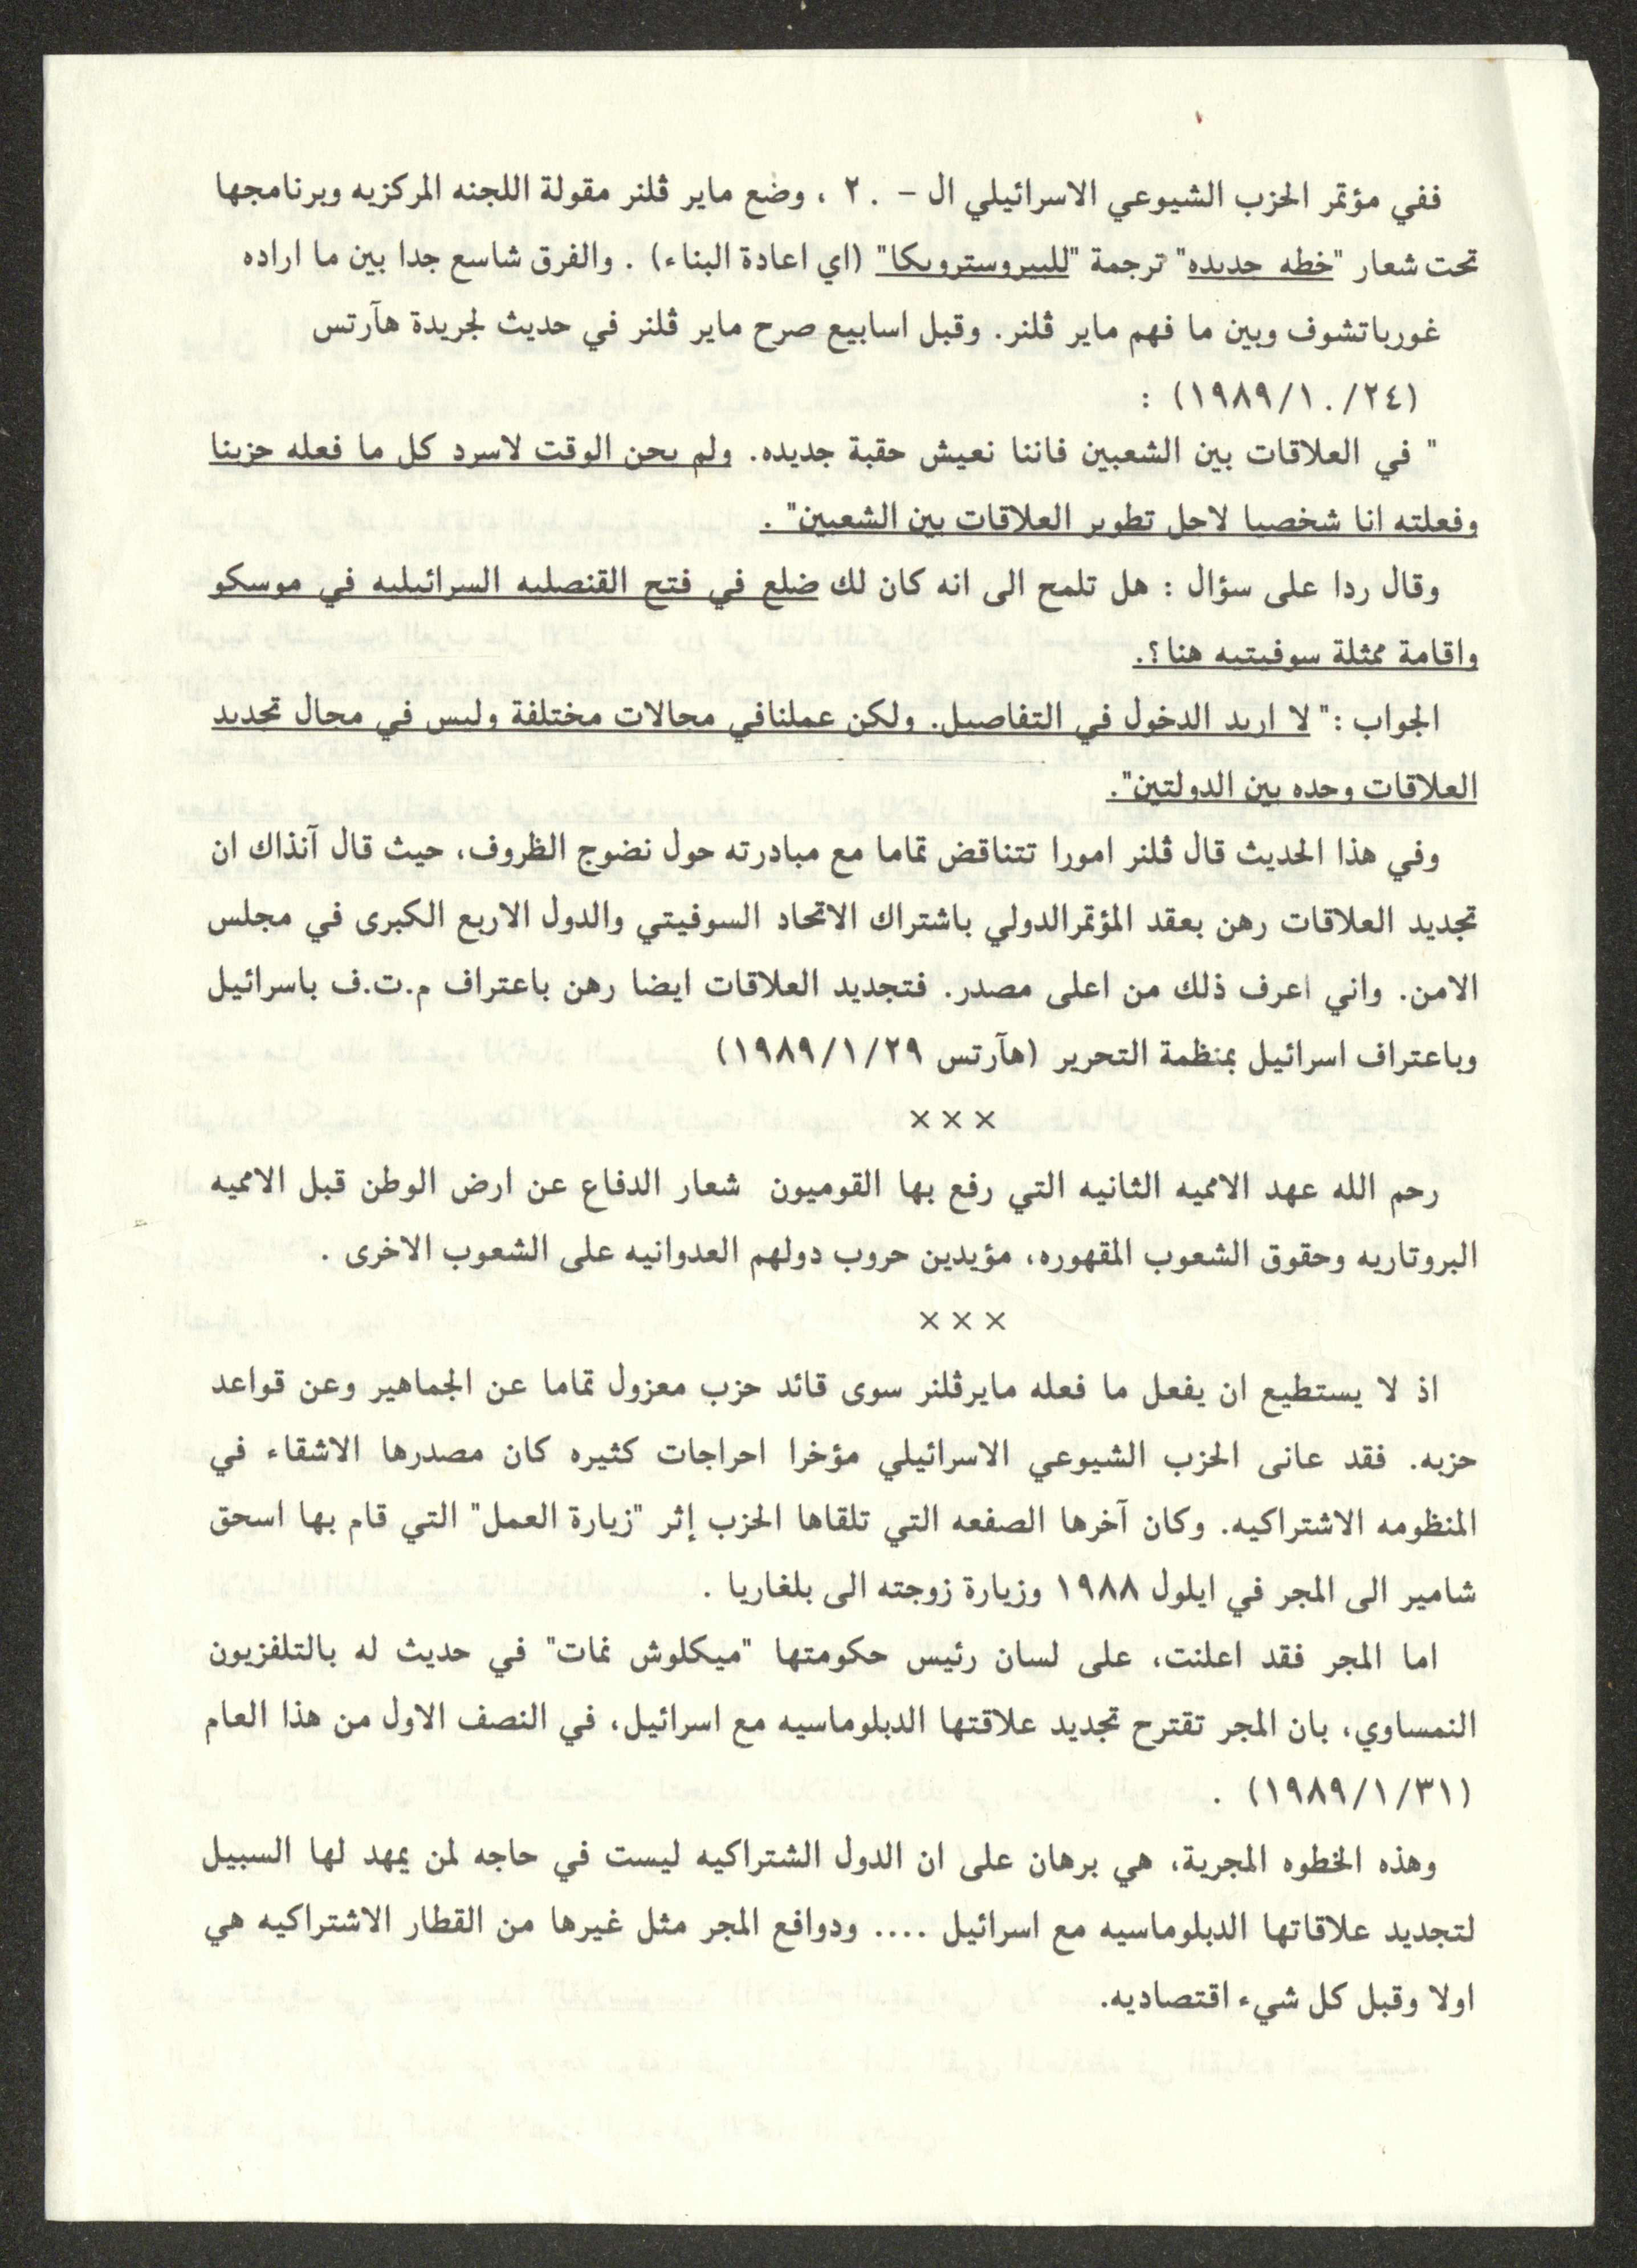 ففي مؤتمر الحزب الشيوعي الاسرائيلي ال - ٢٠ ، وضع ماير ڤلنر مقولة اللجنه المركزيه وبرنامجها
تحت شعار "خطه جديده" ترجمة "للبيروسترويكا" (اي اعادة البناء) . والفرق شاسع جدا بين ما اراده
غورباتشوف وبين ما فهم ماير ڤلنر. وقبل اسابيع صرح ماير ڤلنر في حديث لجريدة هآرتس
(٢٤/١٠/١٩٨٩) :
" في العلاقات بين الشعبين فاننا نعيش حقبة جديده. ولم يحن الوقت لاسرد كل ما فعله حزبنا
وفعلته انا شخصيا لاجل تطوير العلاقات بين الشعبين" .
وقال ردا على سؤال : هل تلمح الى انه كان لك ضلع في فتح القنصليه السرائيليه في موسكو
واقامة ممثلة سوفيتيه هنا؟.
الجواب :" لا اريد الدخول في التفاصيل. ولكن عملنافي مجالات مختلفة وليس في مجال تجديد
العلاقات وحده بين الدولتين".
وفي هذا الحديث قال ڤلنر امورا تتناقض تماما مع مبادرته حول نضوج الظروف، حيث قال آنذاك ان
تجديد العلاقات رهن بعقد المؤتمرالدولي باشتراك الاتحاد السوفيتي والدول الاربع الكبرى في مجلس
الامن. واني اعرف ذلك من اعلى مصدر. فتجديد العلاقات ايضا رهن باعتراف م.ت.ف باسرائيل
وباعتراف اسرائيل بمنظمة التحرير (هآرتس ١٩٨٩/١/٢٩)
×××
رحم الله عهد الامميه الثانيه التي رفع بها القوميون شعار الدفاع عن ارض الوطن قبل الامميه
البروتاريه وحقوق الشعوب المقهوره، مؤيدين حروب دولهم العدوانيه على الشعوب الاخرى .
×××
اذ لا يستطيع ان يفعل ما فعله مايرڤلنر سوى قائد حزب معزول تماما عن الجماهير وعن قواعد
حزبه. فقد عانى الحزب الشيوعي الاسرائيلي مؤخرا احراجات كثيره كان مصدرها الاشقاء في
المنظومه الاشتراكيه. وكان آخرها الصفعه التي تلقاها الحزب إثر "زيارة العمل" التي قام بها اسحق
شامير الى المجر في ايلول ١٩٨٨ وزيارة زوجته الى بلغاريا .
اما المجر فقد اعلنت، على لسان رئيس حكومتها "ميكلوش نمات" في حديث له بالتلفزيون
النمساوي، بان المجر تقترح تجديد علاقتها الدبلوماسيه مع اسرائيل، في النصف الاول من هذا العام
(١٩٨٩/١/٣١) .
وهذه الخطوه المجرية، هي برهان على ان الدول الشتراكيه ليست في حاجه لمن يمهد لها السبيل
لتجديد علاقاتها الدبلوماسيه مع اسرائيل .... ودوافع المجر مثل غيرها من القطار الاشتراكيه هي
اولا وقبل كل شيء اقتصاديه.